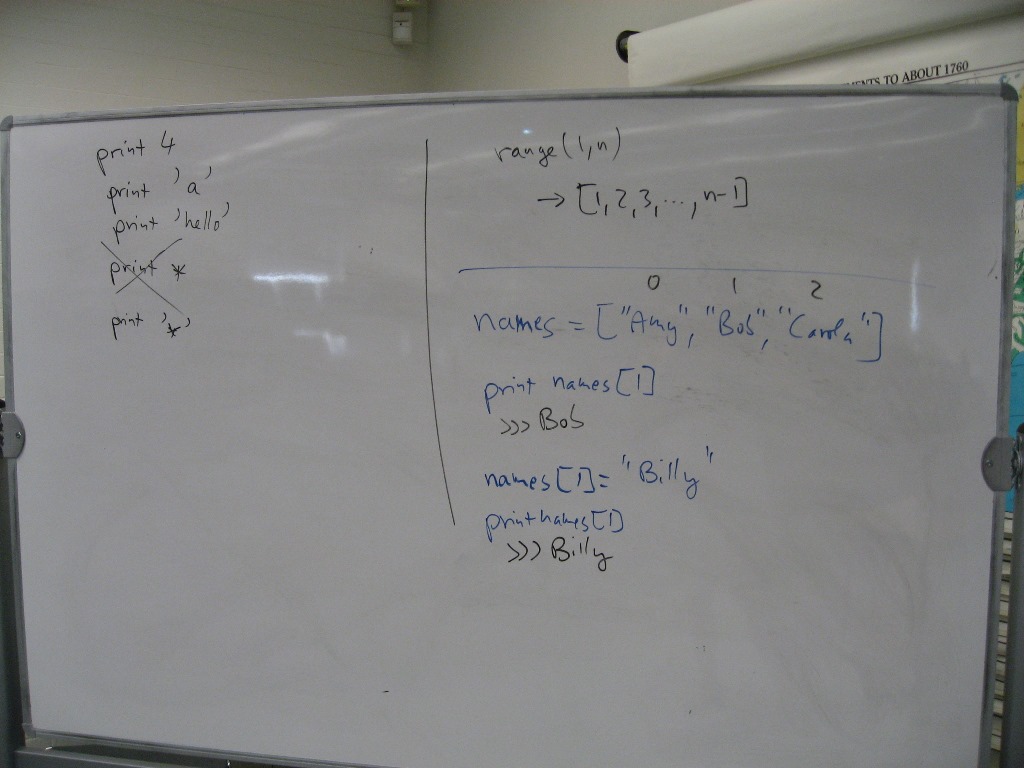 MENTS TO ABOUT 1760
print 4
print 'a'
print 'hello'
print *
print '*'
range(1,n)
→ [1,2,3,...,n-1]
0 1 2
names = ["Amy", "Bob", "Carola"]
print names[1]
>>> Bob
names[1]= "Billy"
print names[1]
>>> Billy